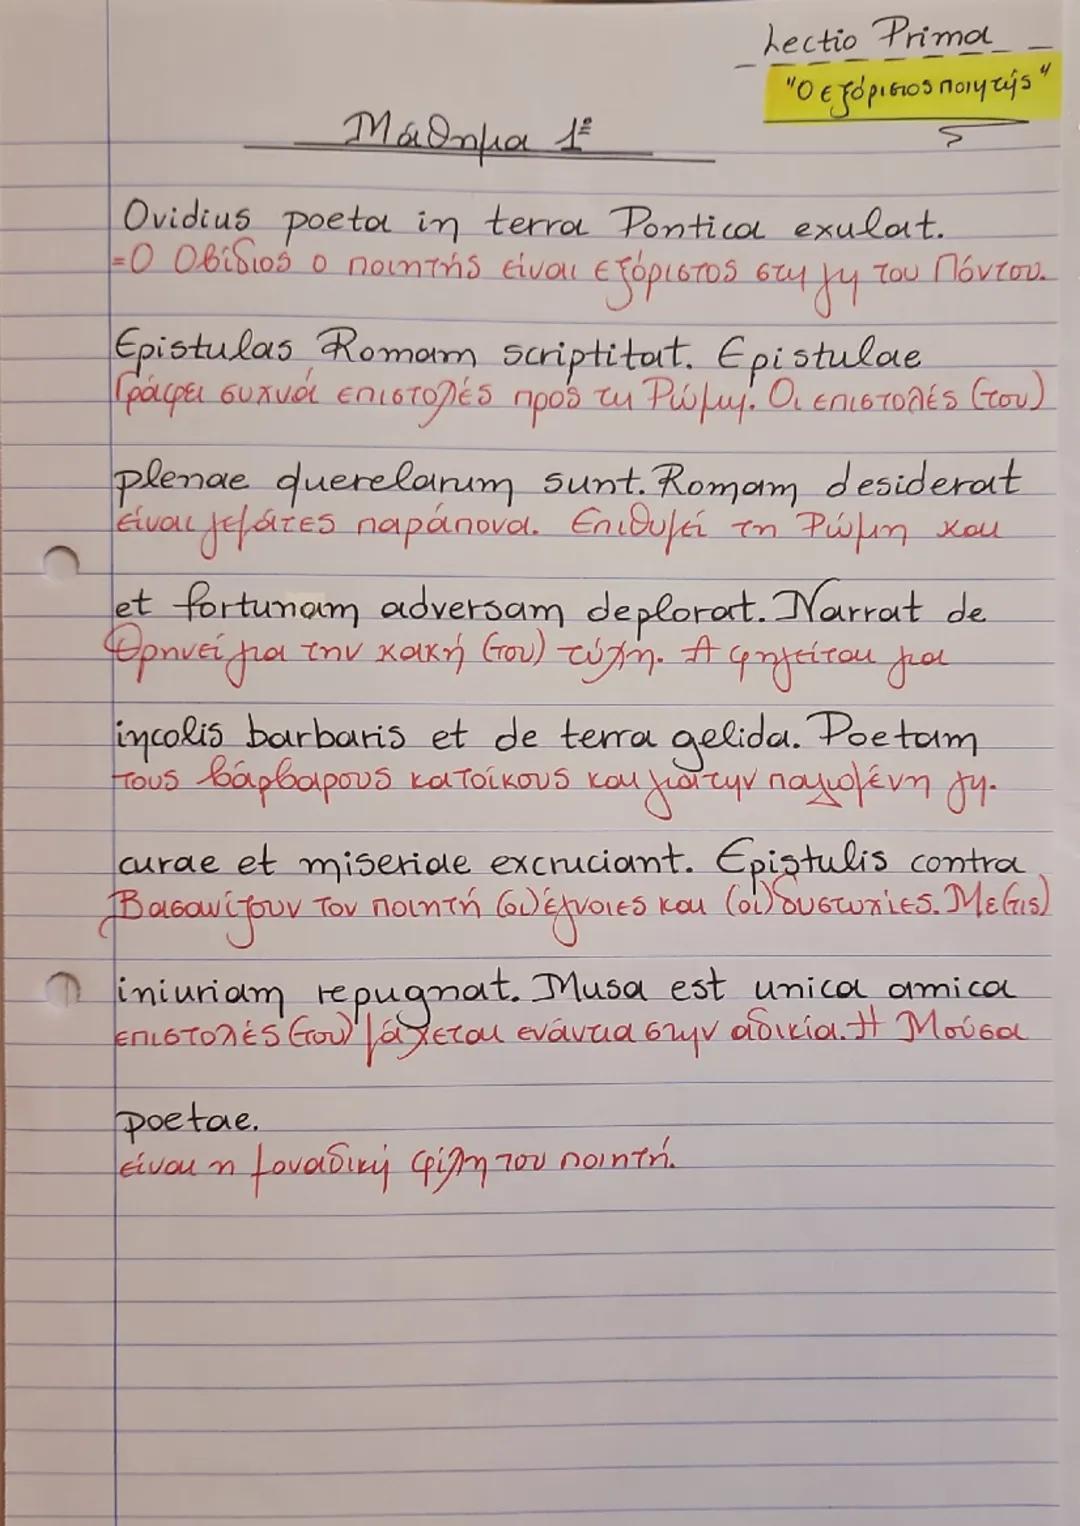 Lectio Prima
"Ο εξόριστος ποιητής"
Μάθημα 1º
Ovidius poeta in terra Pontica exulat.
=Ο Οβίδιος ο ποιητής είναι εξόριστος στη γη του Πόντου.
Epistulas Romam scriptitat. Epistulae
Γράφει συχνά επιστολές προς τη Ρώμη. Οι επιστολές (του)
plenae querelarum sunt. Romam desiderat
είναι γεμάτες παράπονα. Επιθυμεί τη Ρώμη και
et fortunam adversam deplorat. Narrat de
θρηνεί για την κακή (του) τύχη. Αφηγείται για
incolis barbaris et de terra gelida. Poetam
τους βάρβαρους κατοίκους και για την παγωμένη γη.
curae et miseriae excruciant. Epistulis contra
Βασανίζουν τον ποιητή (οι) έγνοιες και (οι) δυστυχίες. Με (τις)
iniuriam repugnat. Musa est unica amica
επιστολές (του) μάχεται ενάντια στην αδικία. Η Μούσα
poetae.
είναι η μοναδική φίλη του ποιητή.